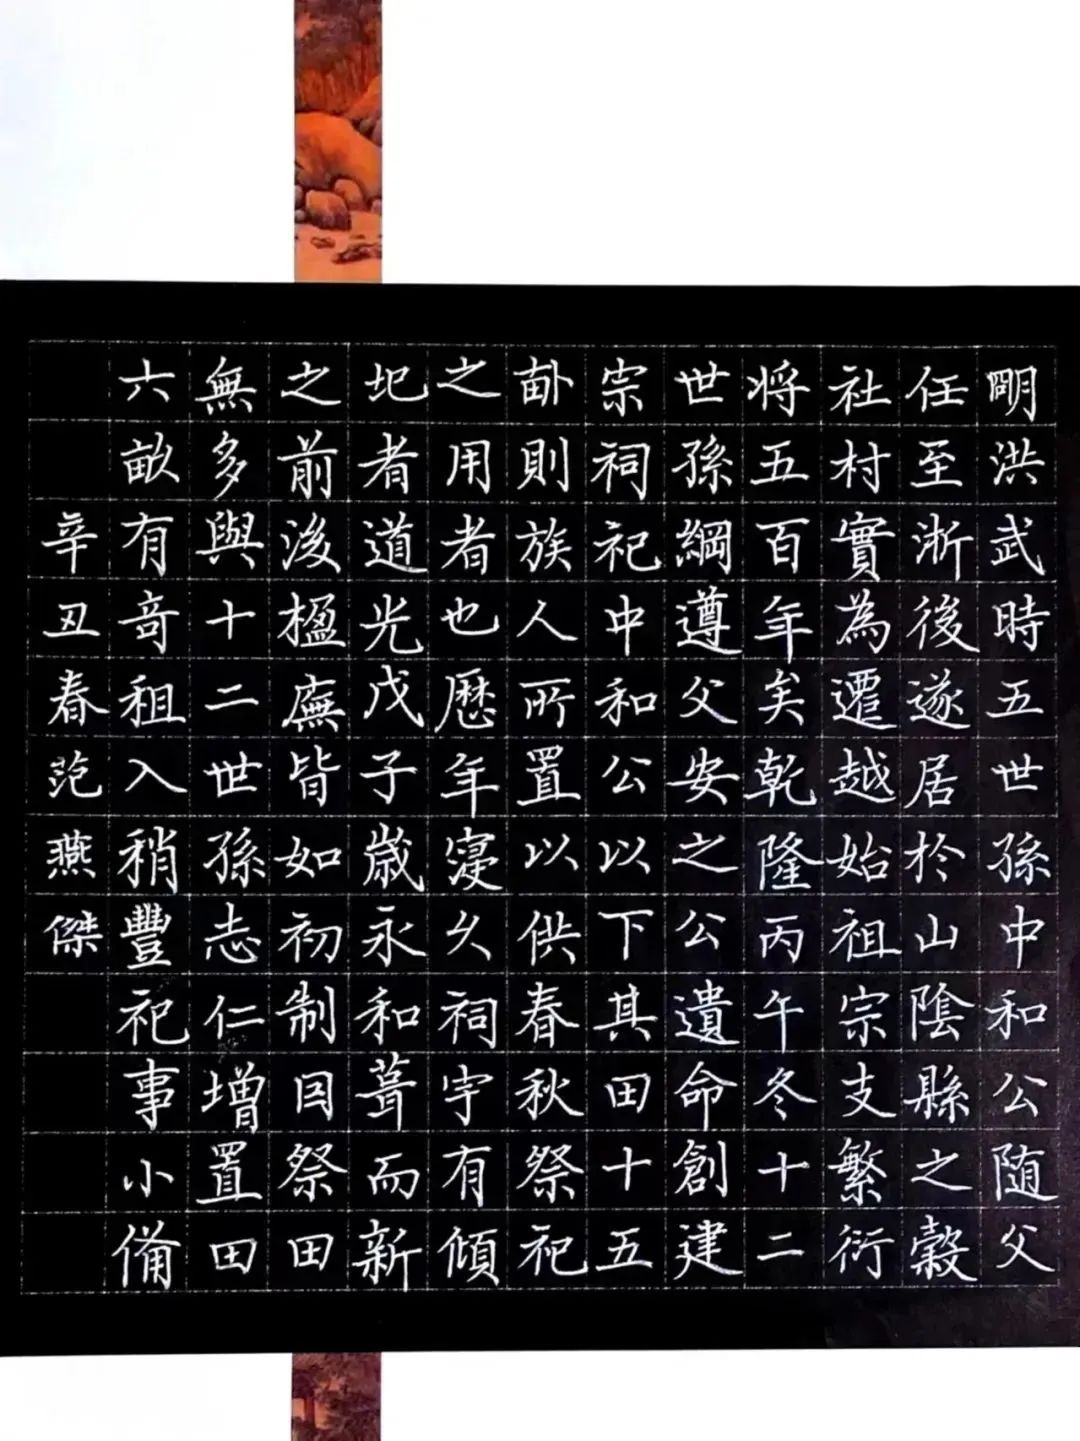 明洪武時五世孫中和公随父
任至淅後遂居於山陰縣之穀
社村實為遷越始祖宗支繁衍
将五百年矣乾隆丙午冬十二
世孫綱遵父安之公遺命創建
宗祠祀中和公以下其田十五
畝則族人所置以供春秋祭祀
之用者也歴年寖久祠宇有傾
圯者道光戊子歲永和葺而新
之前後楹廡皆如初制因祭田
無多與十二世孫志仁增置田
六畝有奇租入稍豐祀事小備
辛丑春范燕傑